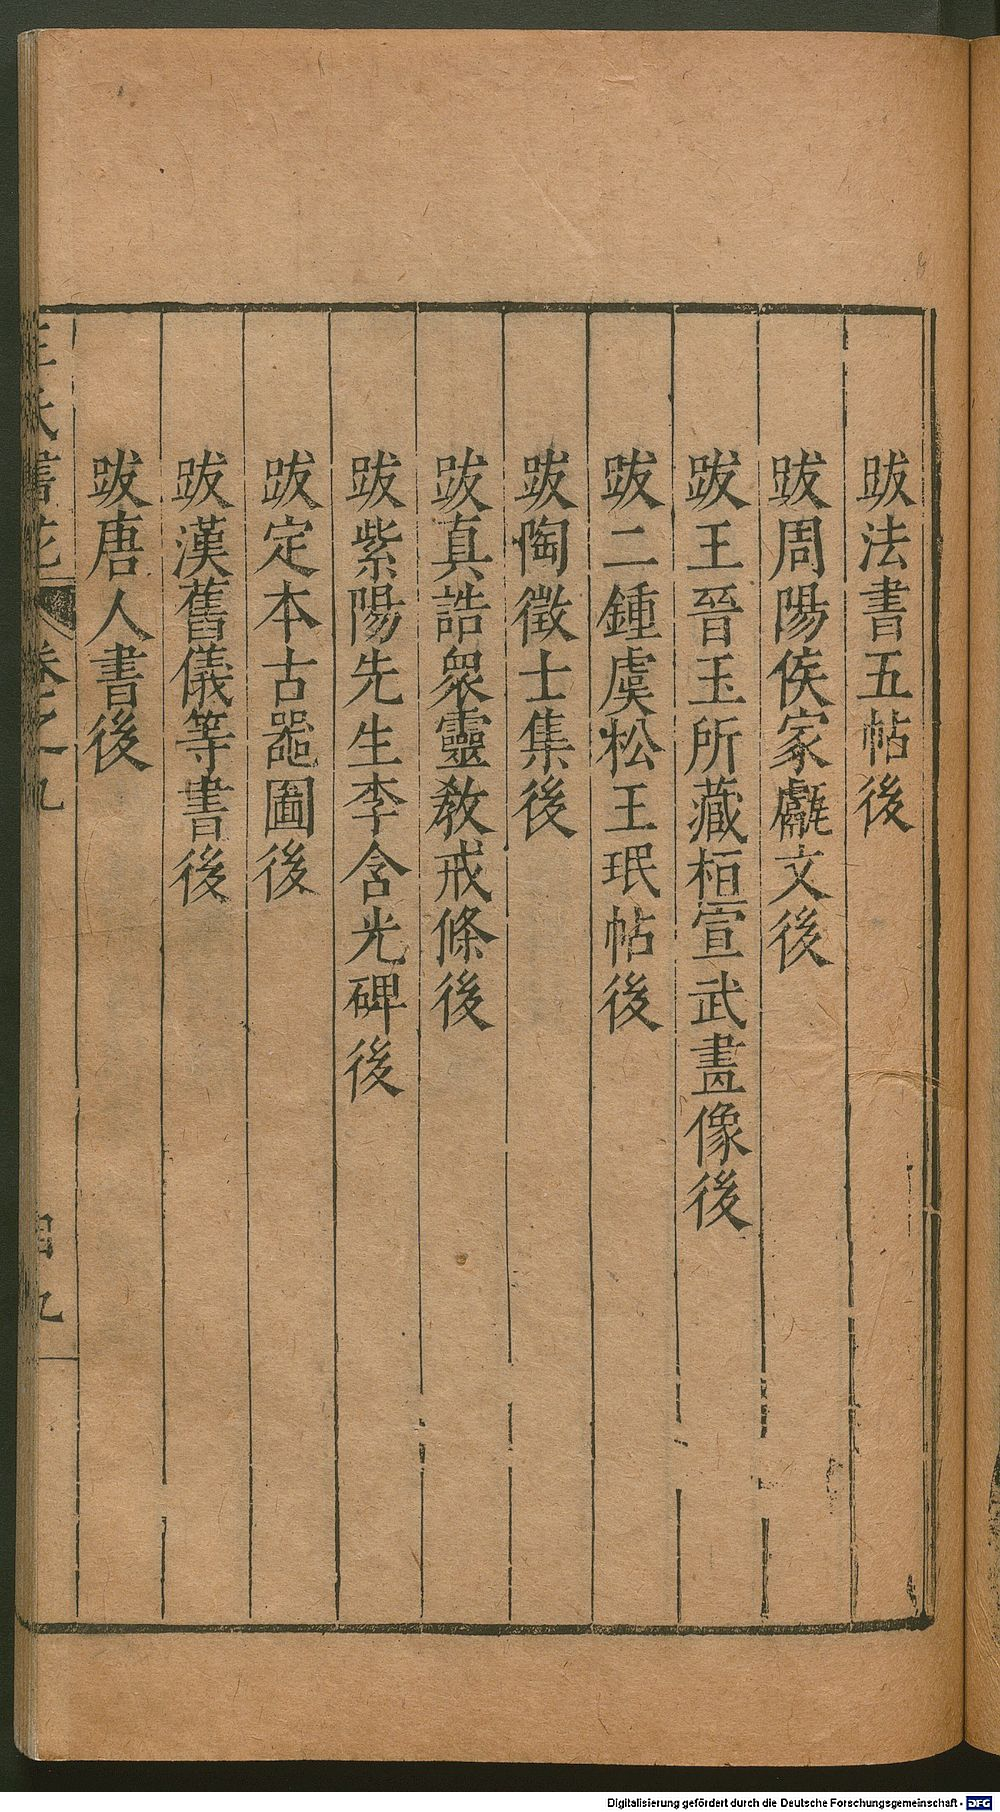 跋法書五帖後
跋周陽侯家甗文後
跋王晉玉所藏桓宣武畫像後
跋二鍾虞松王珉帖後
跋陶徵士集後
跋真誥眾靈敎戒條後
跋紫陽先生李含光碑後
跋定本古器圖後
跋漢舊儀等書後
跋唐人書後
卷之九
Digitalisierung gefördert durch die Deutsche Forschungsgemeinschaft - DFG